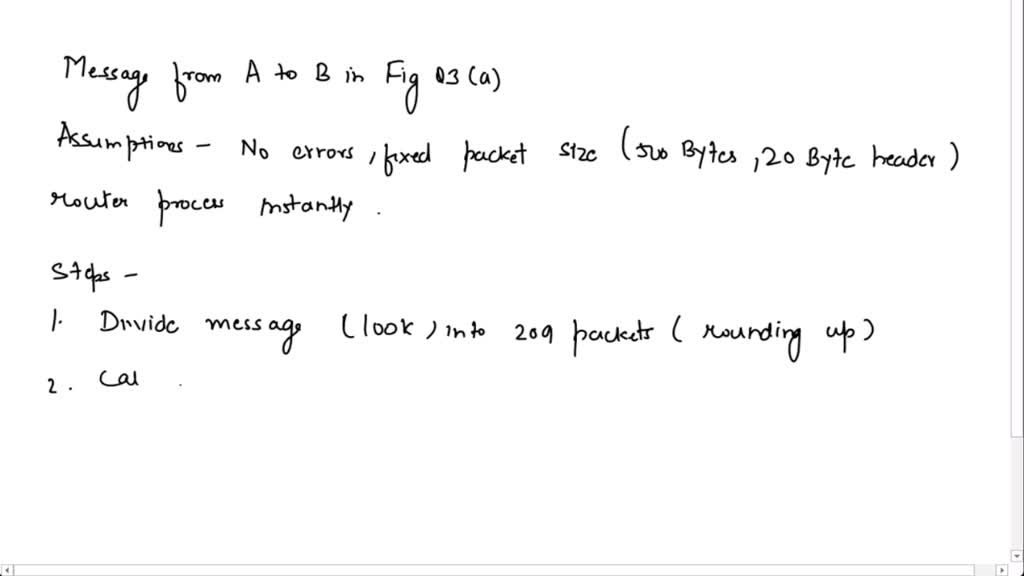 Message from A to B in Fig 03 (a)
Assumptions - No errors, fixed packet size (500 Bytes, 20 Byte header)
router process instantly.
Steps -
1. Divide message (100k) into 209 packets (rounding up)
2. Cal